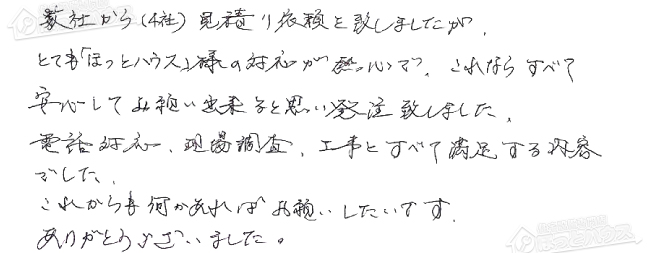 数社から(4社)見積り依頼を致しましたが、
とても「ほっとハウス」様の対応が熱心で、これならすべて
安心してお願い出来ると思い発注致しました。
電話対応、現場調査、工事とすべて満足する内容
でした。
これからも何かあればお願いしたいです。
ありがとうございました。